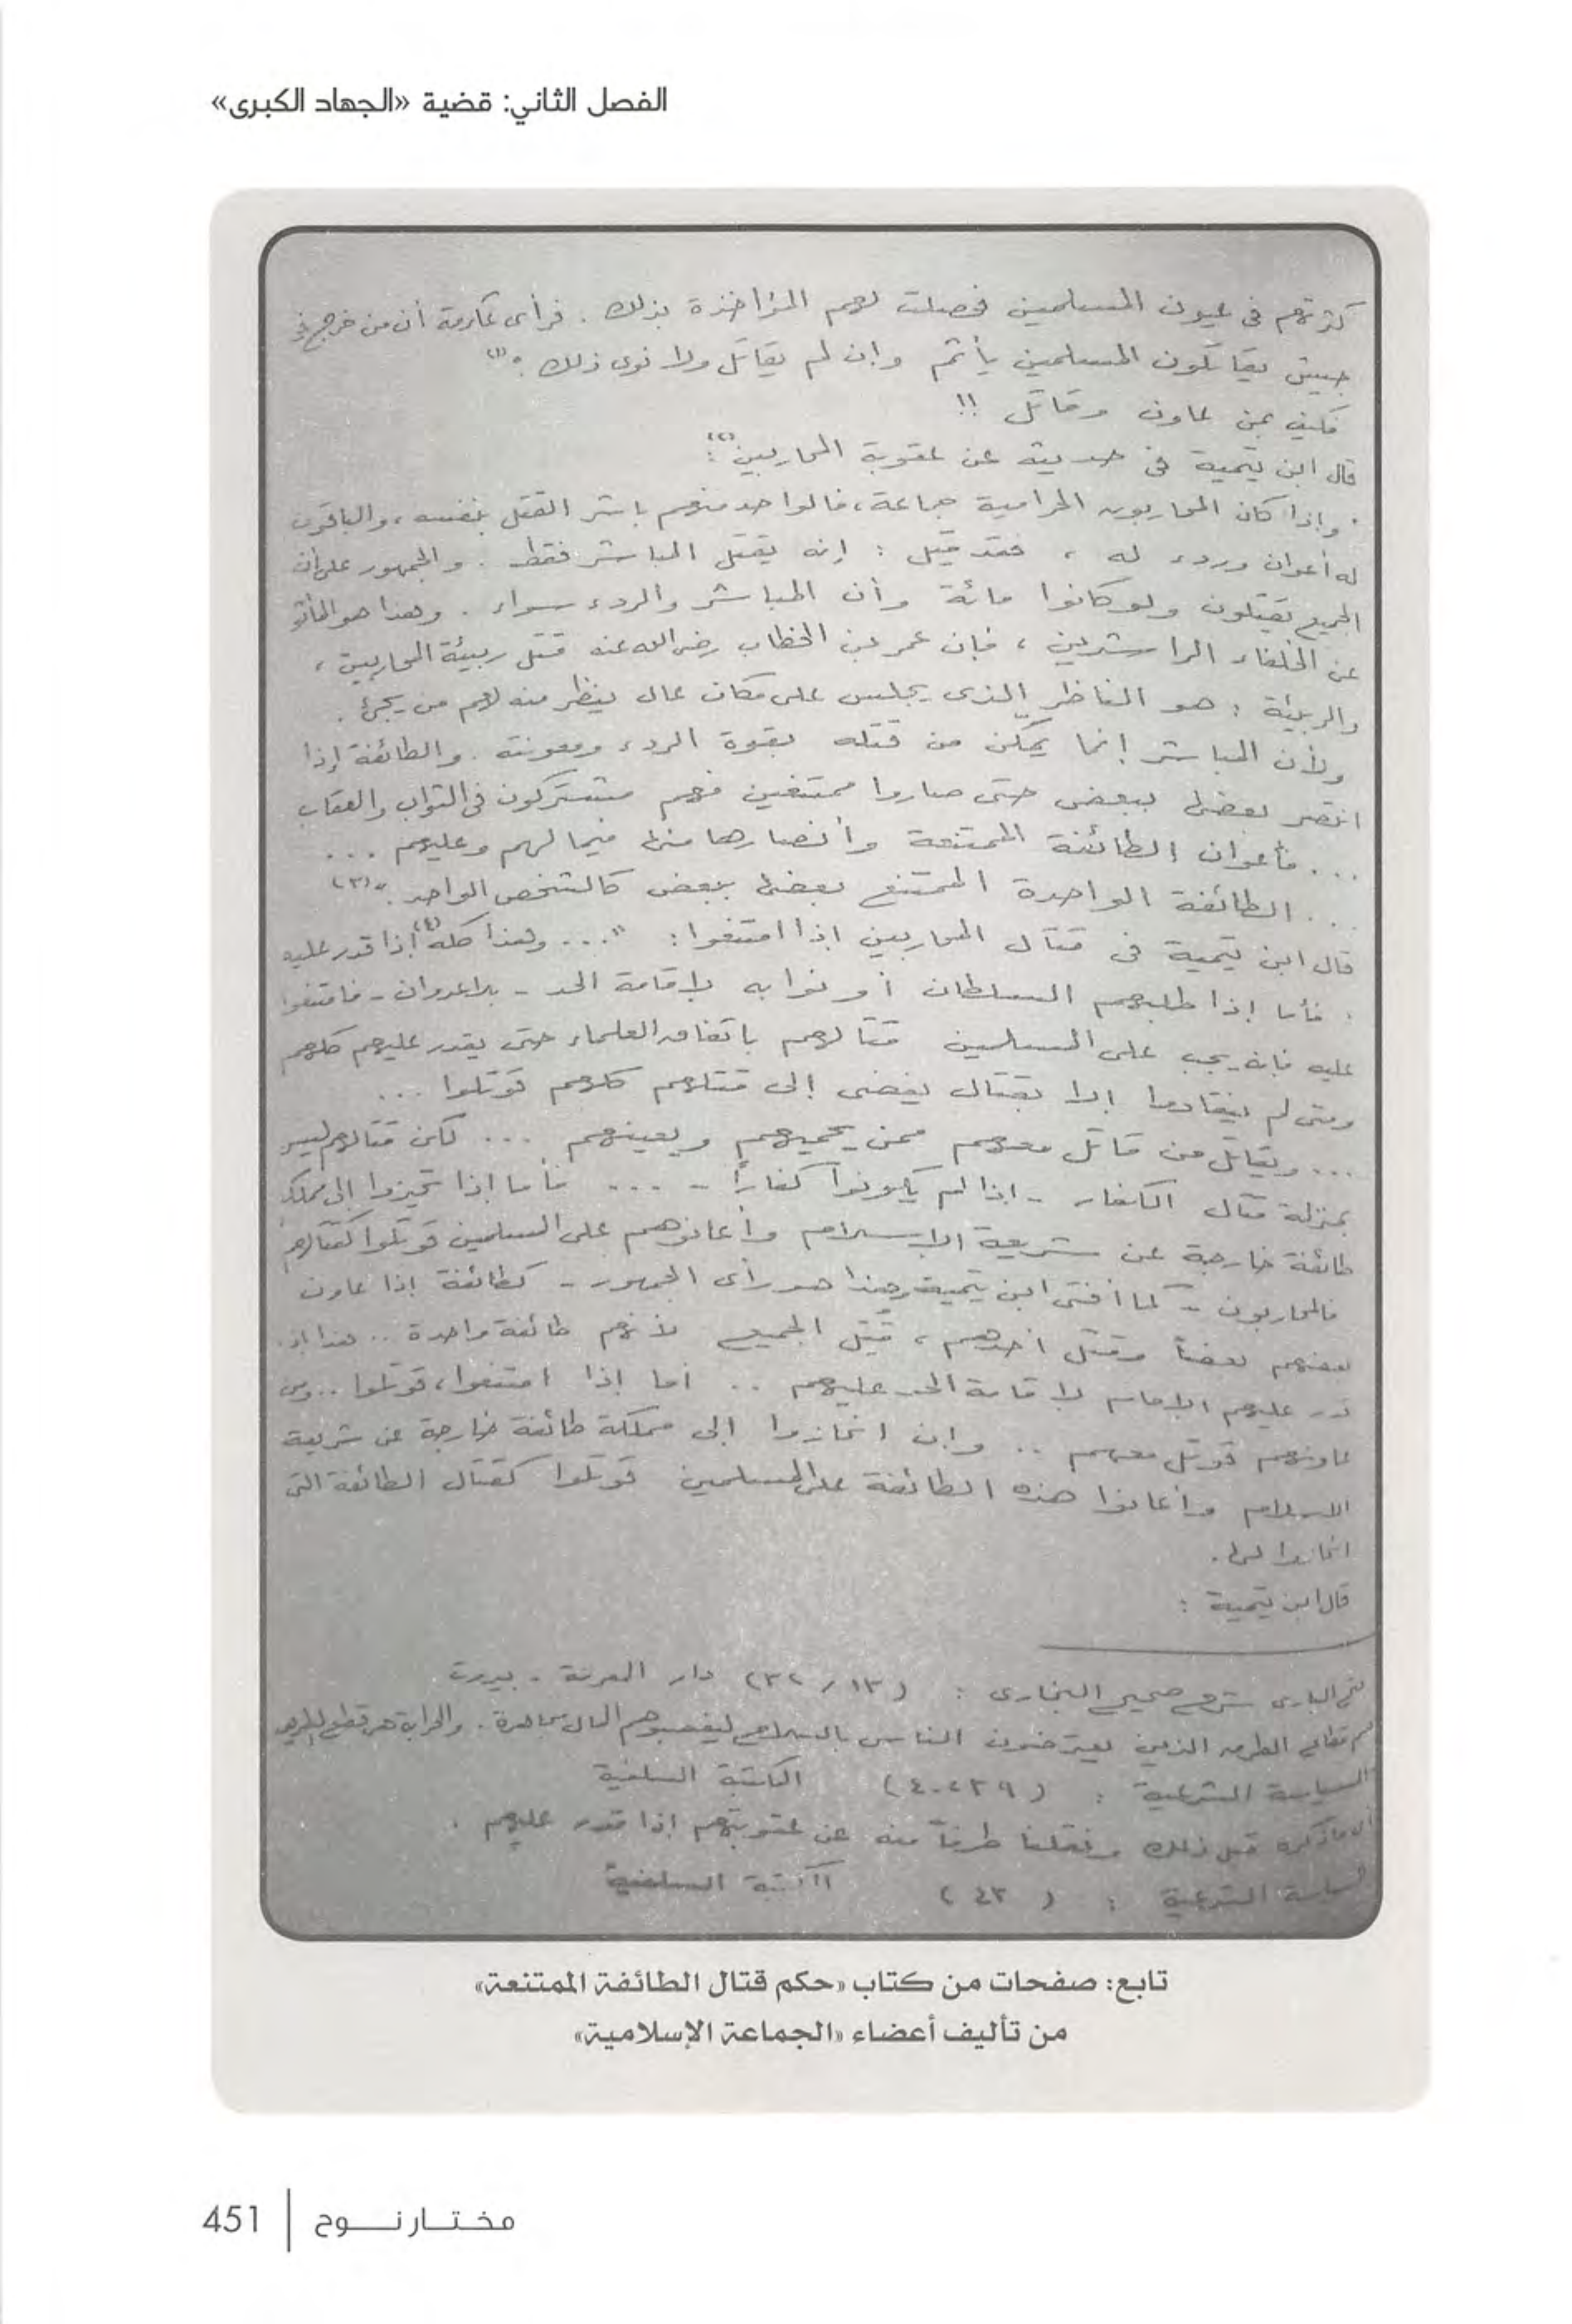 الفصل الثاني: قضية «الجهاد الكبرى»
كثرتهم فى عيون المسلمين فحصلت لهم المؤاخذة بذلك . فرأى عكرمة أن من خرج فى
جيش يقاتلون المسلمين يأثم وإن لم يقاتل ولا نوى ذلك ." (١)
فكيف بمن عاون وقاتل !!
قال ابن تيمية فى حديثه عن عقوبة المحاربين (٢):
" وإذا كان المحاربون الحرامية جماعة، فالواحد منهم باشر القتل بنفسه، والباقون
له أعوان وردء له ، فقد قيل : إنه يقتل المباشر فقط . والجمهور على أن
الجميع يقتلون ولو كانوا مائة وأن المباشر والردء سواء . وهذا هو المأثور
عن الخلفاء الراشدين ، فإن عمر بن الخطاب رضى الله عنه قتل ربيئة المحاربين ،
والربيئة : هو الناظر الذى يجلس على مكان عال ينظر منه لهم من يجئ .
ولأن المباشر إنما يمكن من قتله بقوة الردء ومعونته . والطائفة إذا
انتصر بعضها ببعض حتى صاروا ممتنعين فهم مشتركون فى الثواب والعقاب
... فأعوان الطائفة الممتنعة وأنصارها منها فيما لهم وعليهم ...
... الطائفة الواحدة الممتنع بعضها ببعض كالشخص الواحد ." (٣)
قال ابن تيمية فى قتال المحاربين إذا امتنعوا : "... وهذا كله (٤) إذا قدر عليهم
. فأما إذا طلبهم السلطان أو نوابه لإقامة الحد - بلا عدوان - فامتنعوا
عليه فإنه يجب على المسلمين قتالهم باتفاق العلماء حتى يقدر عليهم كلهم
ومتى لم ينقادوا إلا بقتال يفضى إلى قتلهم كلهم قوتلوا ...
... ويقاتل من قاتل معهم ممن يحميهم ويعينهم ... لكن قتالهم ليس
بمنزلة قتال الكفار - إذا لم يكونوا كفاراً - ... فأما إذا تحيزوا إلى مملكة
طائفة خارجة عن شريعة الإسلام وأعانوهم على المسلمين قوتلوا كقتالهم
فالمحاربون - كما أفتى ابن تيمية وهذا هو رأى الجمهور - كطائفة إذا عاون
بعضهم بعضاً وقتل أحدهم ، قتل الجميع لأنهم طائفة واحدة .. هذا إذا
قدر عليهم الإمام لإقامة الحد عليهم .. أما إذا امتنعوا، قوتلوا .. ومن
عاونهم قوتل معهم .. وإن انحازوا إلى مملكة طائفة خارجة عن شريعة
الإسلام وأعانوا هذه الطائفة على المسلمين قوتلوا كقتال الطائفة التى
انحازوا لها .
قال ابن تيمية :
فتح البارى شرح صحيح البخارى : ( ١٣ / ٣٢ ) دار المعرفة - بيروت
هم قطاع الطرق الذين يعترضون الناس بالسلاح ليغصبوهم المال مجاهرة . والحرابة هى قطع الطريق
السياسة الشرعية : ( ٤٠،٣٩ ) المكتبة السلفية
ما ذكره قبل ذلك ونقلنا طرفاً منه عن عقوبتهم إذا قدر عليهم .
السياسة الشرعية : ( ٤٣ ) المكتبة السلفية
تابع: صفحات من كتاب «حكم قتال الطائفة الممتنعة»
من تأليف أعضاء «الجماعة الإسلامية»
مختار نوح | 451